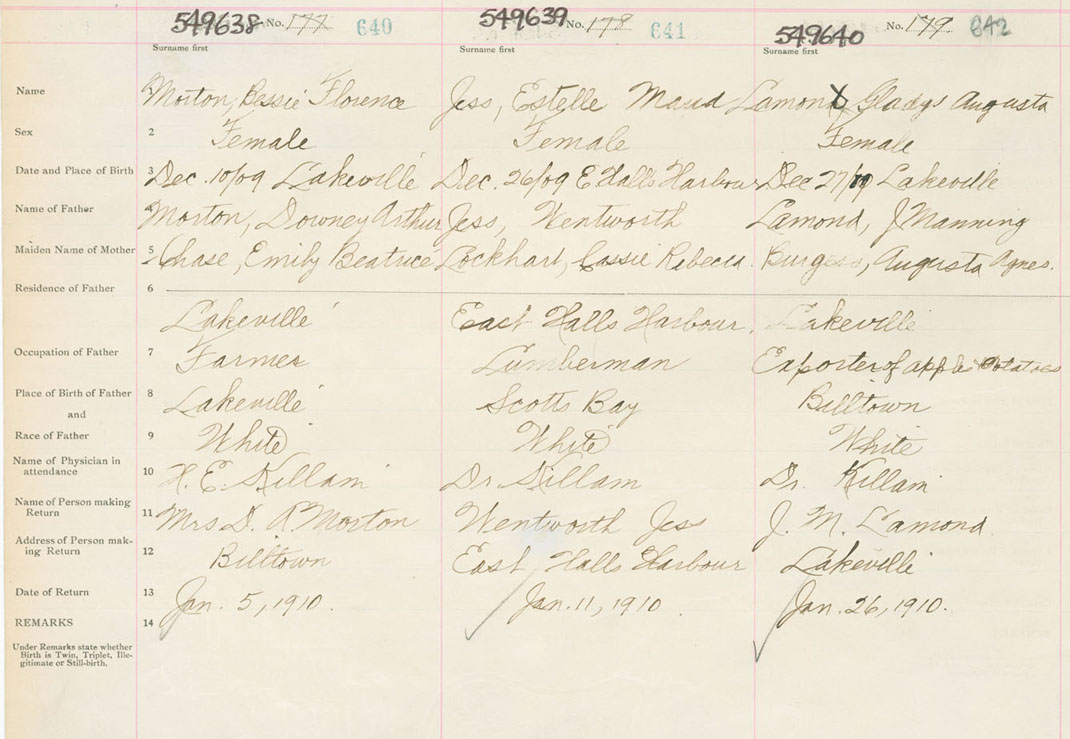 549638 No. 177 640 549639 No. 178 641 549640 No. 179 642
Surname first Surname first Surname first
Name 1 Morton, Bessie Florence Jess, Estelle Maud Lamond, Gladys Augusta
Sex 2 Female Female Female
Date and Place of Birth 3 Dec. 10/09 Lakeville Dec. 26/09 E. Halls Harbour Dec 27/ Lakeville
Name of Father 4 Morton, Downey Arthur Jess, Wentworth Lamond, J Manning
Maiden Name of Mother 5 Chase, Emily Beatrice Lockhart, Cassie Rebecca Burgess, Augusta Agnes.
Residence of Father 6
Lakeville East Halls Harbour. Lakeville
Occupation of Father 7 Farmer Lumberman Exporter of apples potatoes
Place of Birth of Father 8 Lakeville Scotts Bay Billtown
and
Race of Father 9 White White White
Name of Physician in
attendance 10 H. E. Killam Dr. Killam Dr. Killam
Name of Person making
Return 11 Mrs D. A Morton Wentworth Jess J. M. Lamond
Address of Person mak-
ing Return 12 Billtown East Halls Harbour Lakeville
Date of Return 13 Jan. 5, 1910. Jan. 11, 1910. Jan. 26, 1910.
REMARKS 14
Under Remarks state whether
Birth is Twin, Triplet, Ille-
gitimate or Still-birth.